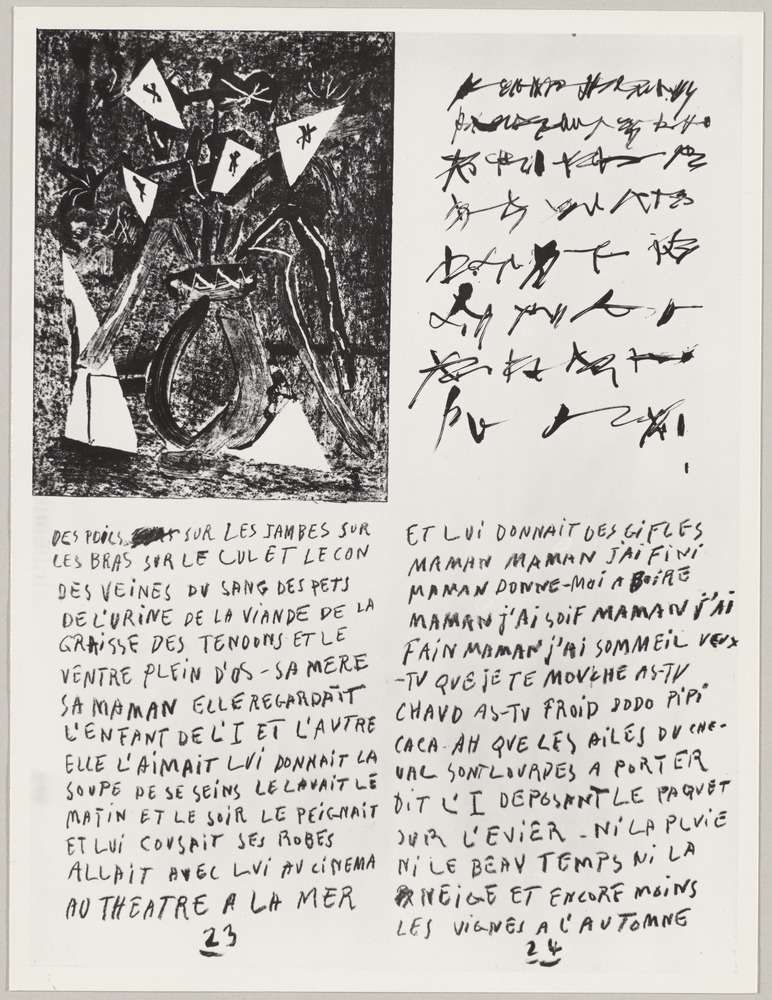 DES POILS SUR LES JAMBES SUR
LES BRAS SUR LE CUL ET LE CON
DES VEINES DU SANG DES PETS
DE L'URINE DE LA VIANDE DE LA
GRAISSE DES TENDONS ET LE
VENTRE PLEIN D'OS - SA MERE
SA MAMAN ELLE REGARDAIT
L'ENFANT DE L'I ET L'AUTRE
ELLE L'AIMAIT LUI DONNAIT LA
SOUPE DE SE SEINS LE LAVAIT LE
MATIN ET LE SOIR LE PEIGNAIT
ET LUI COUSAIT SES ROBES
ALLAIT AVEC LUI AU CINEMA
AU THEATRE A LA MER
23
ET LUI DONNAIT DES GIFLES
MAMAN MAMAN J'AI FINI
MAMAN DONNE-MOI A BOIRE
MAMAN j'AI SOIF MAMAN j'AI
FAIN MAMAN j'AI SOMMEIL VEUX
-TU QUE jE TE MOUCHE AS-TU
CHAUD AS-TU FROID DODO PIPI
CACA. AH QUE LES AILES DU CHE-
VAL SONT LOURDES A PORTER
DIT L'I DEPOSANT LE PAQUET
SUR L'EVIER - NI LA PLUIE
NI LE BEAU TEMPS NI LA
NEIGE ET ENCORE MOINS
LES VIGNES A L'AUTOMNE
24